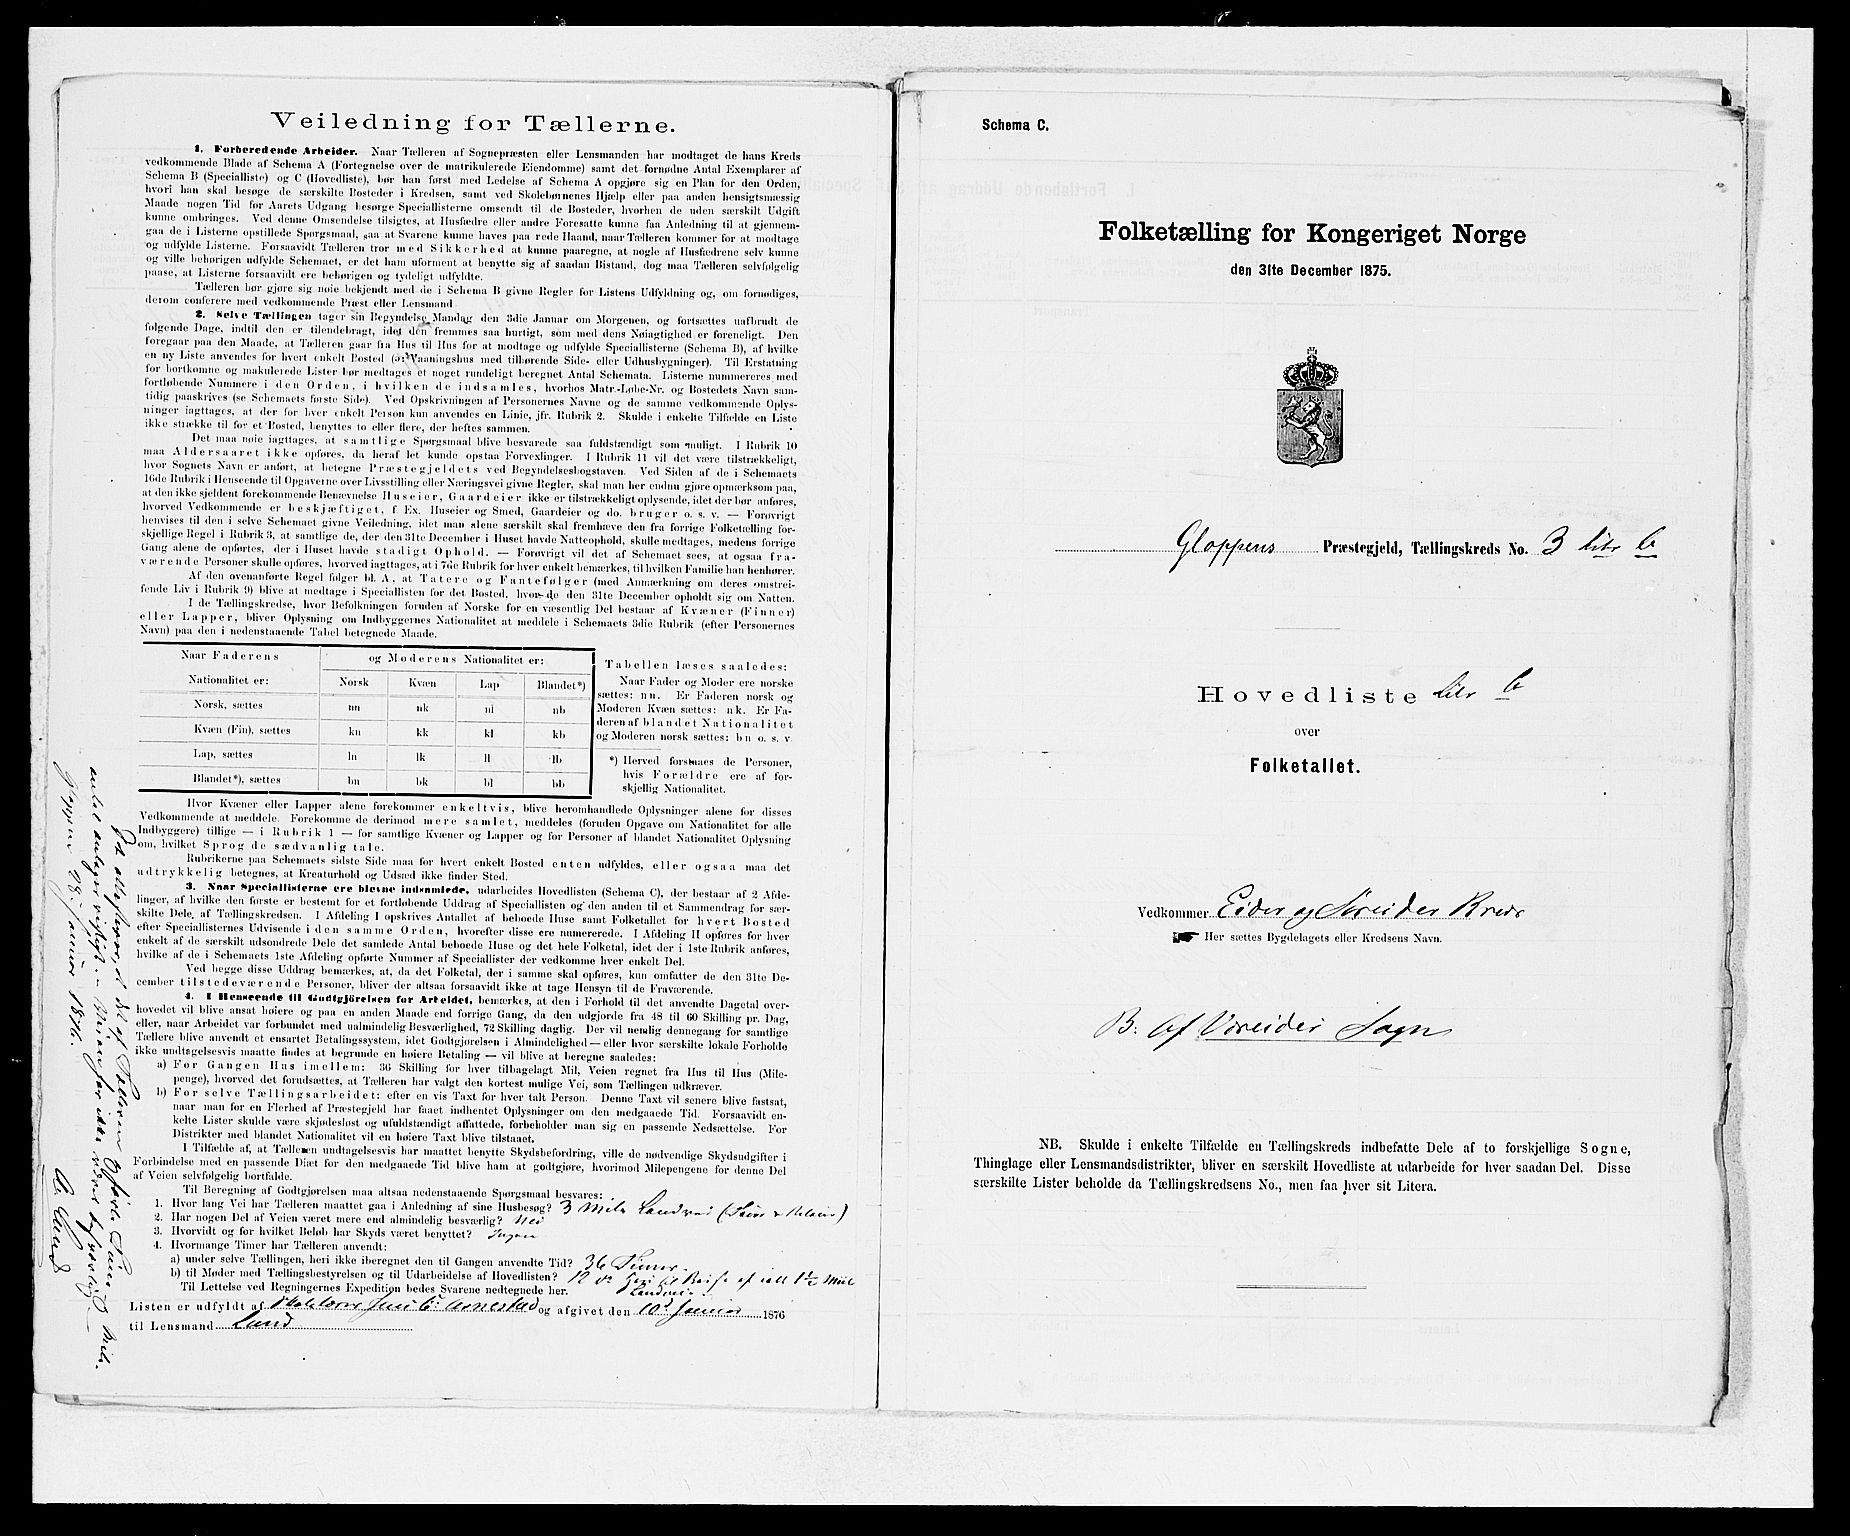 Veiledning for Tællerne.
1. Forberedende Arbeider. Naar Tælleren af Sognepræsten eller Lensmanden har modtaget de hans Kreds
vedkommende Blade af Schema A (Fortegnelse over de matrikulerede Eiendomme) samt det fornødne Antal Exemplarer af
Schema B (Specialliste) og C (Hovedliste), bør han først med Ledelse af Schema A opgjøre sig en Plan for den Orden,
hvori han skal besøge de særskilte Bosteder i Kredsen, samt ved Skolebørnenes Hjælp eller paa anden hensigtsmæssig
Maade nogen Tid før Aarets Udgang besørge Speciallisterne omsendt til de Bosteder, hvorhen de uden særskilt Udgift
kunne ombringes. Ved denne Omsendelse tilsigtes, at Husfædre eller andre Foresatte kunne faa Anledning til at gjennem-
gaa de i Listerne opstillede Spørgsmaal, saa at Svarene kunne haves paa rede Haand, naar Tælleren kommer for at modtage
og udfylde Listerne. Forsaavidt Tælleren tror med Sikkerhed at kunne paaregne, at nogle af Husfædrene selv kunne
og ville behørigen udfylde Schemaet, er det ham uforment at benytte sig af saadan Bistand, dog maa Tælleren selvfølgelig
paase, at Listerne forsaavidt ere behørigen og tydeligt udfyldte.
Tælleren bør gjøre sig nøie bekjendt med de i Schema B givne Regler for Listens Udfyldning og, om fornødiges,
derom conferere med vedkommende Præst eller Lensmand
2. Selve Tællingen tager sin Begyndelse Mandag den 3die Januar om Morgenen, og fortsættes uafbrudt de
følgende Dage, indtil den er tilendebragt, idet den fremmes saa hurtigt, som med dens Nøiagtighed er foreneligt. Den
foregaar paa den Maade, at Tælleren gaar fra Hus til Hus for at modtage og udfylde Speciallisterne (Schema B), af hvilke
en ny Liste anvendes for hvert enkelt Bosted (ɔ: Vaaningshus med tilhørende Side- eller Udhusbygninger). Til Erstatning
for bortkomne og makulerede Lister bør medtages et noget rundeligt beregnet Antal Schemata. Listerne nummereres med
fortløbende Nummere i den Orden, i hvilken de indsamles, hvorhos Matr.-Løbe-Nr. og Bostedets Navn sam-
tidig paaskrives (se Schemaets første Side). Ved Opskrivningen af Personernes Navne og de samme vedkommende Oplys-
ninger iagttages, at der for hver enkelt Person kun anvendes en Linie, jfr. Rubrik 2. Skulde i enkelte Tilfælde en Liste
ikke strække til for et Bosted, benyttes to eller flere, der heftes sammen.
Det maa nøie iagttages, at samtlige Spørgsmaal blive besvarede saa fuldstændigt som muligt. I Rubrik 10
maa Aldersaaret ikke opføres, da heraf let kunde opstaa Forvexlinger. I Rubrik 11 vil det være tilstrækkeligt,
hvor Sognets Navn er anført, at betegne Præstegjeldets ved Begyndelsesbogstaven. Ved Siden af de i Schemaets
16de Rubrik i Henseende til Opgaverne over Livsstilling eller Næringsvei givne Regler, skal man her endnu gjøre opmærksom paa,
at den ikke sjeldent forekommende Benævnelse Huseier, Gaardeier ikke er tilstrækkeligt oplysende, idet der bør anføres,
hvorved Vedkommende er beskjæftiget, f Ex. Huseier og Smed, Gaardeier og do. bruger o. s. v. — Forøvrigt
henvises til den i selve Schemaet givne Veiledning, idet man alene særskilt skal fremhæve den fra forrige Folketælling for-
skjellige Regel i Rubrik 3, at samtlige de, der den 31te December i Huset havde Natteophold, skulle medtages, medens forrige
Gang alene de opførtes, der i Huset havde stadigt Ophold. — Forøvrigt vil det af Schemaet sees, at ogsaa fra-
værende Personer skulle opføres, hvorved iagttages, at i 7de Rubrik for hver enkelt bemærkes, til hvilken Familie han henhører.
Af den ovenanførte Regel følger bl. A, at Tatere og Fantefølger (med Anmærkning om deres omstrei-
fende Liv i Rubrik 9) blive at medtage i Speciallisten for det Bosted, hvor de den 31te December opholdt sig om Natten.
I de Tællingskredse, hvor Befolkningen foruden af Norske for en væsentlig Del bestaar af Kvæner (Finner)
eller Lapper, bliver Oplysning om Indbyggernes Nationalitet at meddele i Schemaets 3die Rubrik (efter Personernes
Navn) paa den i nedenstaaende Tabel betegnede Maade.
Naar Faderens og Moderens Nationalitet er:
Nationalitet er: Norsk Kvæn Lap Blandet*)
Norsk, sættes nn nk nl nb
Kvæn (Fin), sættes kn kk kl kb
Lap, sættes ln lk ll lb
Blandet*), sættes bn bk bl bb
Tabellen læses saaledes:
Naar Fader og Moder ere norske
sættes: nn. Er Faderen norsk og
Moderen Kvæn sættes: nk. Er Fa-
deren af blandet Nationalitet
og Moderen norsk sættes: bn o. s. v.
*) Herved forstaaes de Personer,
hvis Forældre ere af for-
skjellig Nationalitet.
Hvor Kvæner eller Lapper alene forekommer enkeltvis, blive heromhandlede Oplysninger alene for disses
Vedkommende at meddele. Forekomme de derimod mere samlet, meddeles (foruden Opgave om Nationalitet for alle
Indbyggere) tillige — i Rubrik 1 — for samtlige Kvæner og Lapper og for Personer af blandet Nationalitet Oplysning
om, hvilket Sprog de sædvanlig tale.
Rubrikerne paa Schemaets sidste Side maa for hvert enkelt Bosted enten udfyldes, eller ogsaa maa det
udtrykkelig betegnes, at Kreaturhold og Udsæd ikke finder Sted.
3. Naar Speciallisterne ere blevne indsamlede, udarbeides Hovedlisten (Schema C), der bestaar af 2 Afde-
linger, af hvilke den første er bestemt for et fortløbende Uddrag af Speciallisten og den anden til et Sammendrag for sær-
skilte Dele af Tællingskredsen. I Afdeling I opskrives Antallet af beboede Huse samt Folketallet for hvert Bosted
efter Speciallisternes Udvisende i den samme Orden, hvorefter disse ere numererede. I Afdeling II opføres for hver
enkelt af de særskilt udsondrede Dele det samlede Antal beboede Huse og det hele Folketal, idet der i 1ste Rubrik anføres,
hvilke af de i Schemaets 1ste Afdeling opførte Nummer af Speciallister der vedkomme hver enkelt Del.
Ved begge disse Uddrag bemærkes, at, da det Folketal, der i samme skal opføres, kun omfatter de den 31te De-
cember tilstedeværende Personer, bliver der altsaa forsaavidt ikke at tage Hensyn til de Fraværende.
4. I Henseende til Godtgjörelsen for Arbeidet, bemærkes, at den i Forhold til det anvendte Dagetal over-
hovedet vil blive ansat høiere og paa en anden Maade end forrige Gang, da den udgjorde fra 48 til 60 Skilling pr. Dag,
eller, naar Arbeidet var forbundet med ualmindelig Besværlighed, 72 Skilling daglig. Der vil nemlig dennegang for samtlige
Tællere blive anvendt et ensartet Betalingssystem, idet Godtgjørelsen i Almindelighed — eller hvor særskilte lokale Forholde
ikke undtagelsesvis maatte findes at begrunde en høiere Betaling — vil blive at beregne saaledes:
a) For Gangen Hus imellem: 36 Skilling for hver tilbagelagt Mil, Veien regnet fra Hus til Hus (Mile-
penge), hvorved det forudsættes, at Tælleren har valgt den kortest mulige Vei, som Tællingen udkræver.
b) For selve Tællingsarbeidet: efter en vis Taxt for hver talt Person. Denne Taxt vil senere blive fastsat,
naar man for en Flerhed af Præstegjeld har faaet indhentet Oplysninger om den medgaaede Tid. Forsaavidt en-
kelte Lister skulde være skjødesløst og ufuldstændigt affattede, forbeholder man sig en passende Nedsættelse. For
Distrikter med blandet Nationalitet vil en høiere Taxt blive tilstaaet.
I Tilfælde af, at Tælleren undtagelsesvis har maattet benytte Skydsbefordring, ville de nødvendige Skydsudgifter i
Forbindelse med en passende Diæt for den medgaaede Tid blive ham at godtgjøre, hvorimod Milepengene for denne Del
af Veien selvfølgelig bortfalde.
Til Beregning af Godtgjørelsen maa altsaa nedenstaaende Spørgsmaal besvares:
1. Hvor lang Vei har Tælleren maattet gaa i Anledning af sine Husbesøg? 3 Mile Landvei
2. Har nogen Del af Veien været mere end almindelig besværlig? Nei
3. Hvorvidt og for hvilket Beløb har Skyds været benyttet? Ingen
4. Hvormange Timer har Tælleren anvendt:
a) under selve Tællingen, heri ikke iberegnet den til Gangen anvendte Tid? 36 Timer
b) til Møder med Tællingsbestyrelsen og til Udarbeidelse af Hovedlisten? 12 1½ Miil
Landvei
Til Lettelse ved Regningernes Expedition bedes Svarene nedtegnede her.
Listen er udfyldt af og afgivet den 10d Januar 1876
til Lensmand Lund
Gloppen 28 Januar 1876.
Schema C.
Folketælling for Kongeriget Norge
den 31te December 1875.
Gloppens Præstegjeld, Tællingskreds No. 3 litr b
Hovedliste litr b
over
Folketallet.
Vedkommer Eides og Søreides Kreds
Her sættes Bygdelagets eller Kredsens Navn.
B: Af Vereides Sogn
NB. Skulde i enkelte Tilfælde en Tællingskreds indbefatte Dele af to forskjellige Sogne,
Thinglage eller Lensmandsdistrikter, bliver en særskilt Hovedliste at udarbeide for hver saadan Del. Disse
særskilte Lister beholde da Tællingskredsens No., men faa hver sit Litera.